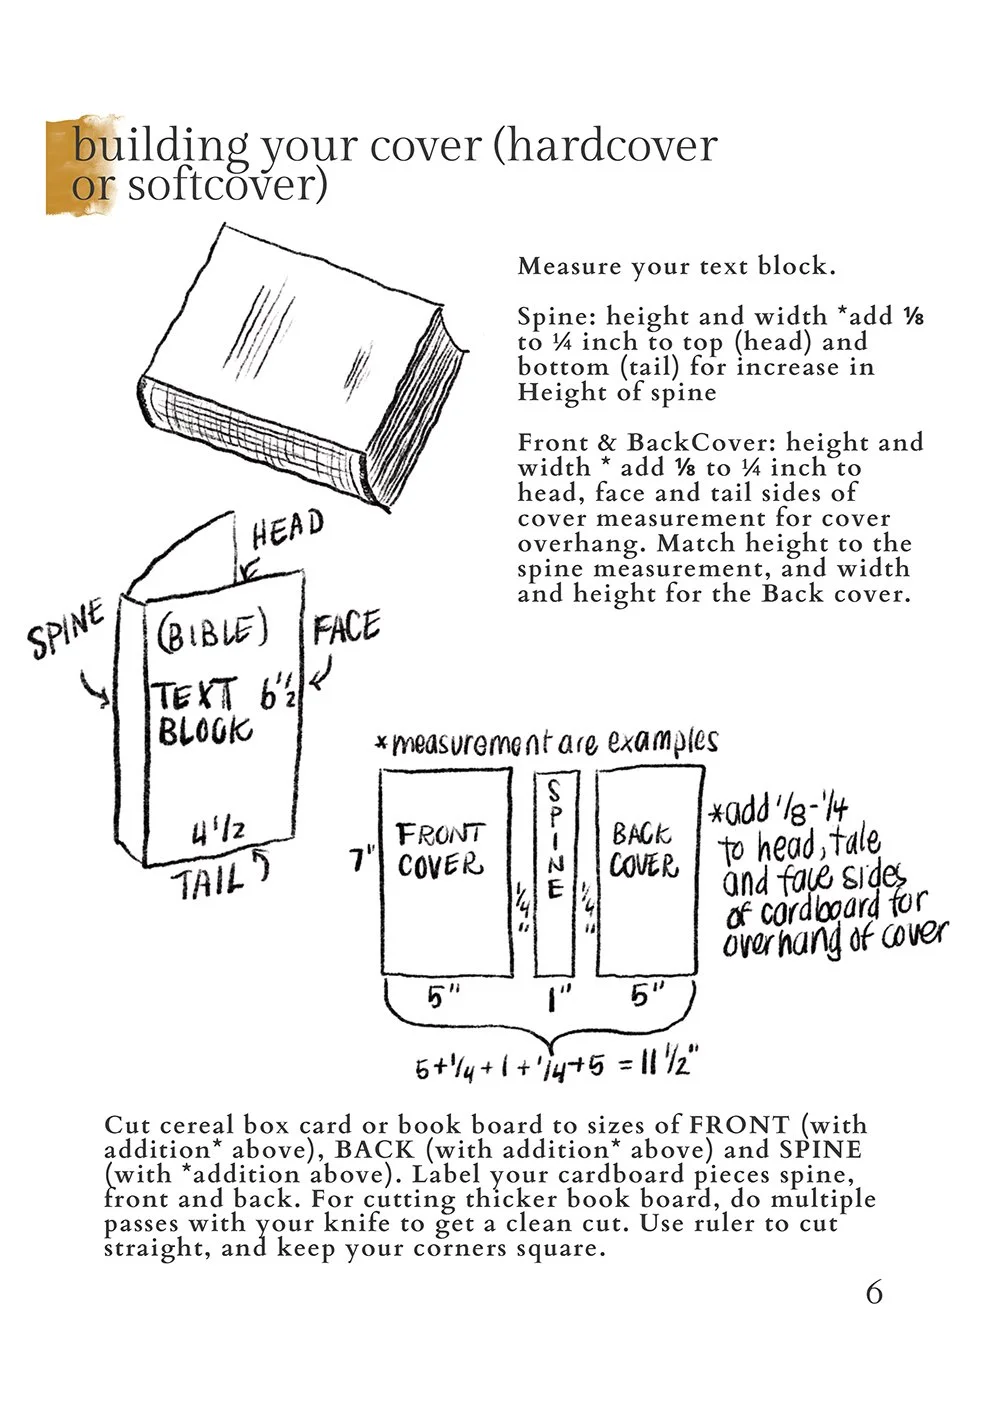 building your cover (hardcover
or softcover)
Measure your text block.
Spine: height and width *add ⅛
to ¼ inch to top (head) and
bottom (tail) for increase in
Height of spine
Front & BackCover: height and
width * add ⅛ to ¼ inch to
head, face and tail sides of
cover measurement for cover
overhang. Match height to the
spine measurement, and width
and height for the Back cover.
HEAD
SPINE
(BIBLE)
FACE
TEXT 6"½
BLOCK
4 1/2
TAIL
*measurement are examples
FRONT
COVER
SPINE
BACK
COVER
7"
¼"
¼"
5"
1"
5"
5+1/4+1+1/4+5 = 11 1/2"
*add 1/8-1/4
to head, tale
and face sides
of cardboard for
overhang of cover
Cut cereal box card or book board to sizes of FRONT (with
addition* above), BACK (with addition* above) and SPINE
(with *addition above). Label your cardboard pieces spine,
front and back. For cutting thicker book board, do multiple
passes with your knife to get a clean cut. Use ruler to cut
straight, and keep your corners square.
6